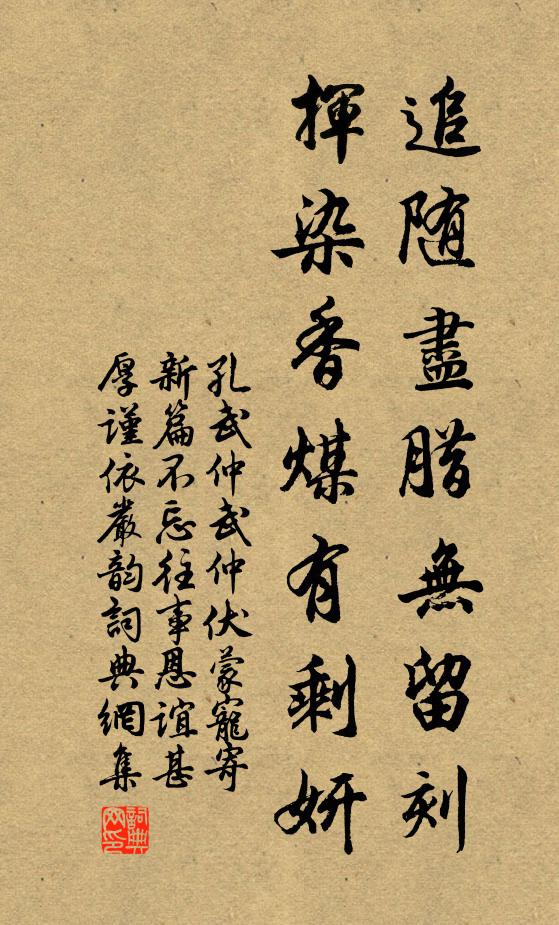 追随盡腊無留刻
揮染香煤有剩妍
孔武仲武仲伏蒙寵寄
新篇不忘往事恩誼甚
厚谨依嚴韵詞典網集
詞典
网印